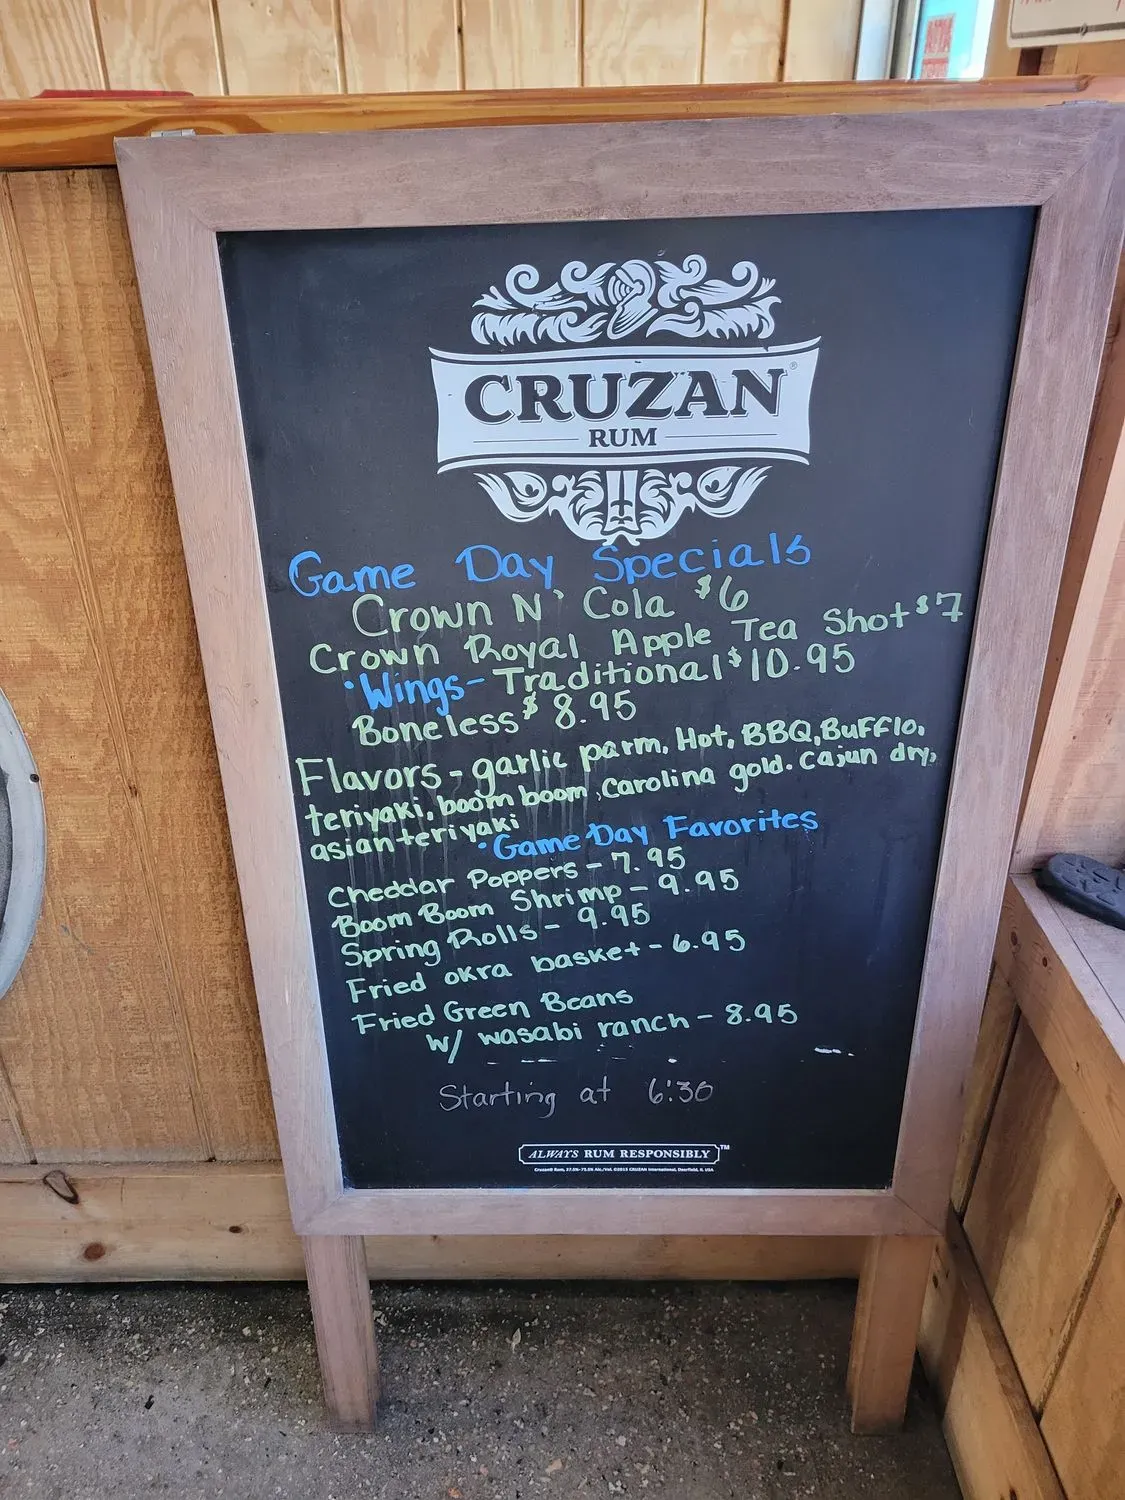 CRUZAN®
RUM
Game Day Specials
Crown N' Cola $6
Crown Royal Apple Tea Shot $7
• Wings - Traditional $10.95
Boneless $8.95
Flavors - garlic parm, Hot, BBQ, Bufflo,
teriyaki, boom boom, Carolina gold. Cajun dry,
asian teriyaki
• Game Day Favorites
Cheddar Poppers - 7.95
Boom Boom Shrimp - 9.95
Spring Rolls - 9.95
Fried okra basket - 6.95
Fried Green Beans
w/ wasabi ranch - 8.95
Starting at 6:30
ALWAYS RUM RESPONSIBLY™
Cruzan® Rum, 27.5%-75.5% Alc./Vol. ©2015 CRUZAN International, Deerfield, IL USA